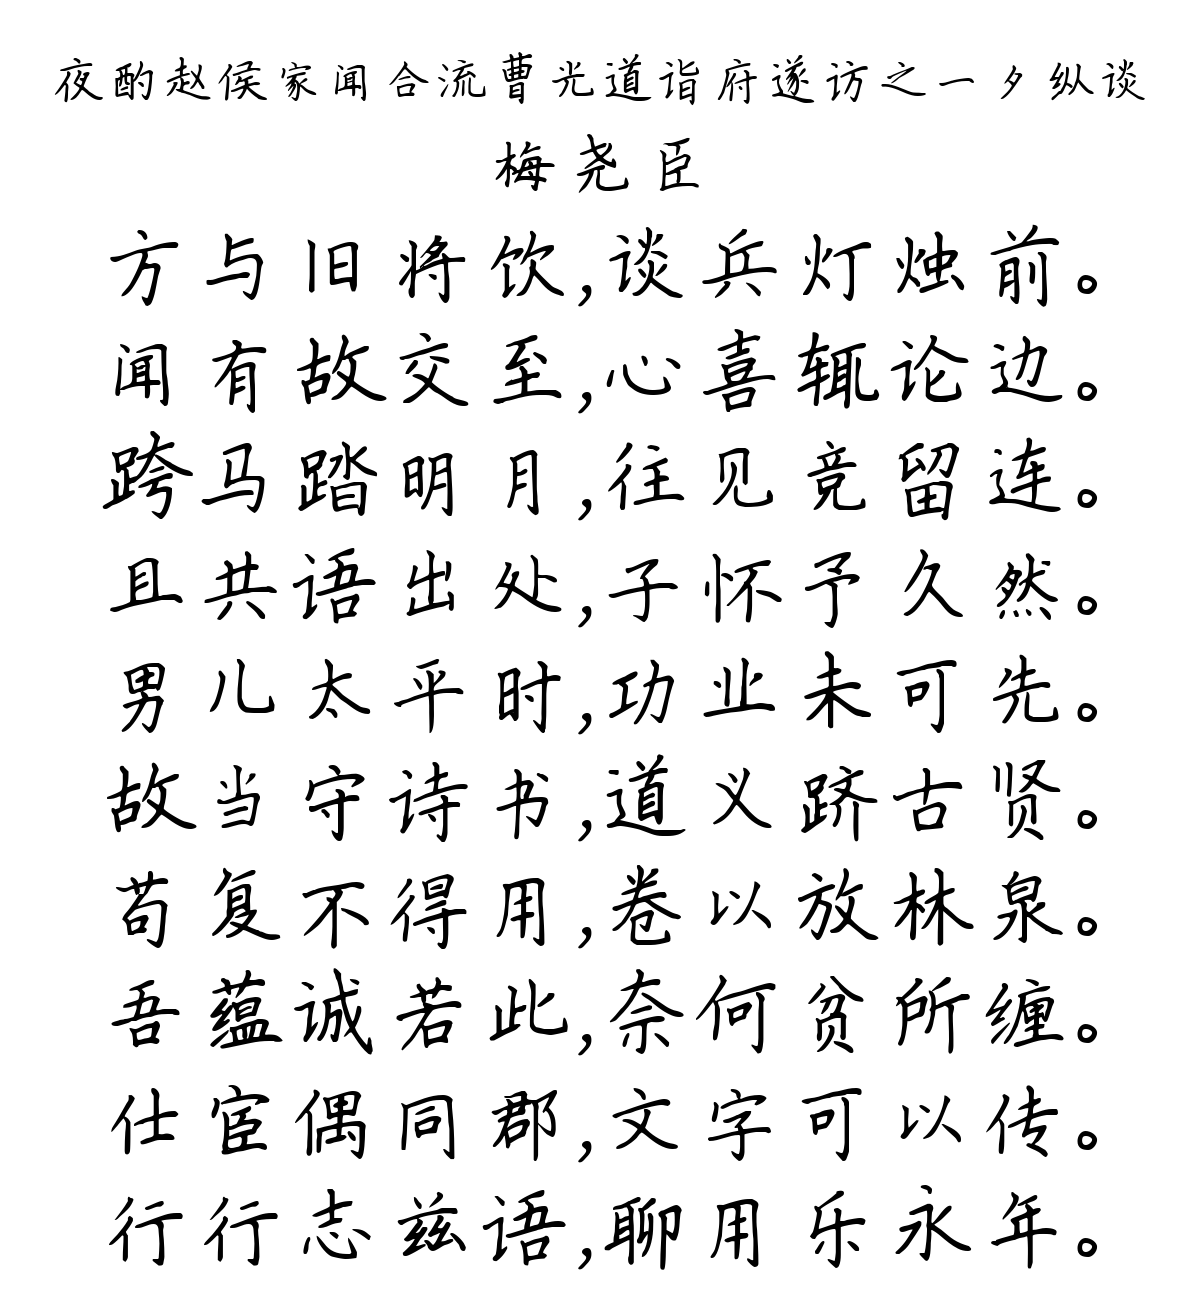 夜酌赵侯家闻合流曹光道诣府遂访之一夕纵谈
梅尧臣
方与旧将饮,谈兵灯烛前。
闻有故交至,心喜辄论边。
跨马踏明月,往见竞留连。
且共语出处,子怀予久然。
男儿太平时,功业未可先。
故当守诗书,道义跻古贤。
苟复不得用,卷以放林泉。
吾蕴诚若此,奈何贫所缠。
仕宦偶同郡,文字可以传。
行行志兹语,聊用乐永年。